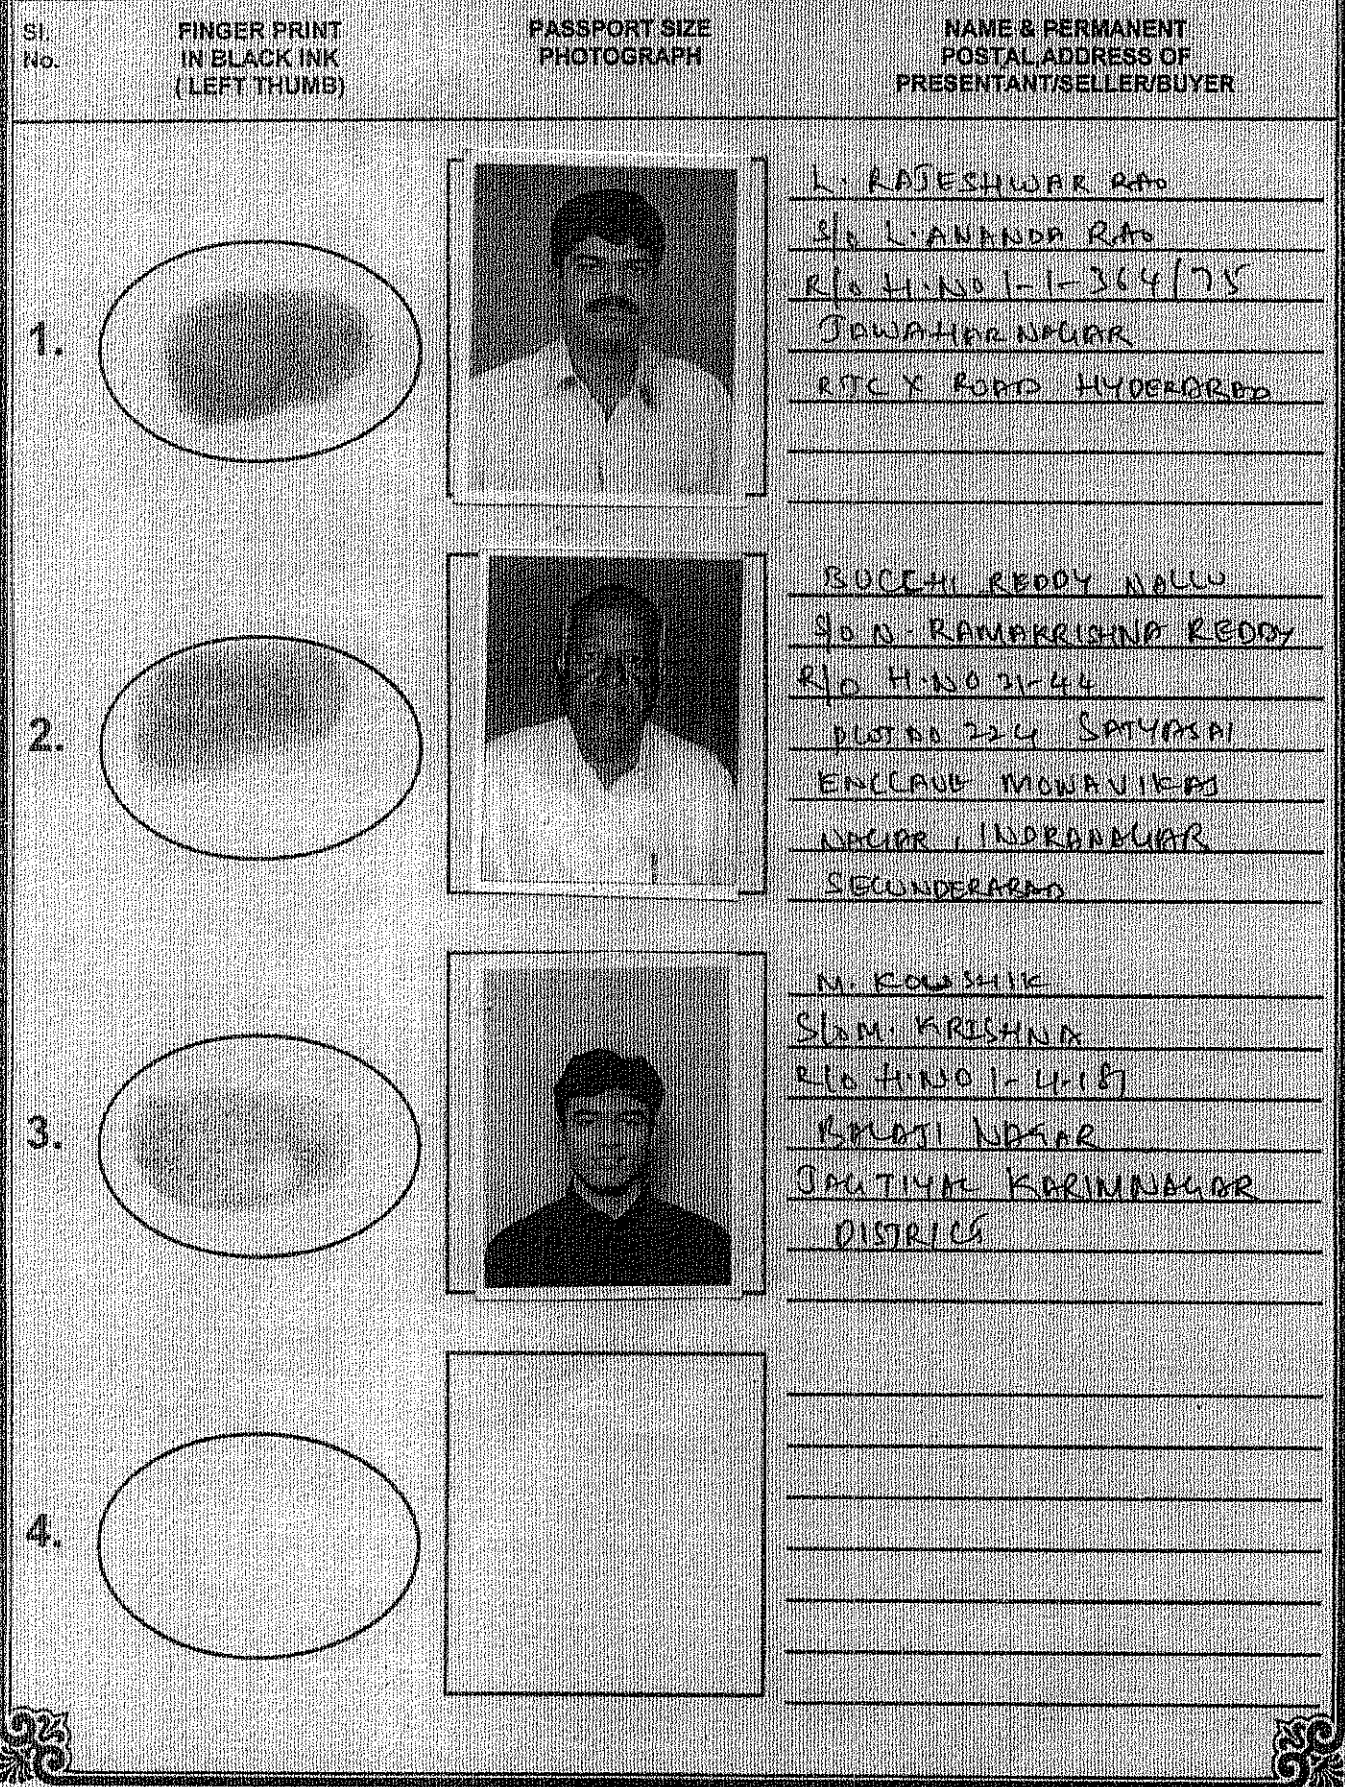 Sl.
No.
FINGER PRINT
IN BLACK INK
( LEFT THUMB)
PASSPORT SIZE
PHOTOGRAPH
NAME & PERMANENT
POSTAL ADDRESS OF
PRESENTANT/SELLER/BUYER
1.
L. RAJESHWAR RAO
S/o L. ANANDA RAO
R/o H.NO 1-1-364/75
JAWAHAR NAGAR
RTC X ROAD HYDERABAD
2.
BUCCHI REDDY NALLU
S/o N. RAMAKRISHNA REDDY
R/o H.NO 31-44
PLOT NO 224 SATYASAI
ENCCAVE
NAGAR, INDRANAGAR
SECUNDERABAD
3.
M. KOWSHIK
S/o M. KRISHNA
R/o H.NO 1-4-187
BALAJI NAGAR
JAGTIYAL KARIMNAGAR
DISTRICT
4.